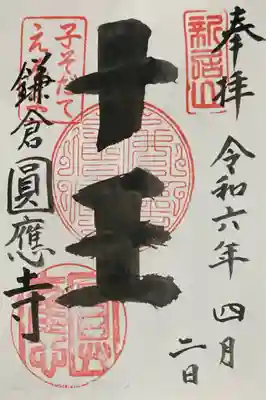 奉拝
新居山
令和六年 四月
二日
十王
子そだて
え
鎌倉 圓應寺